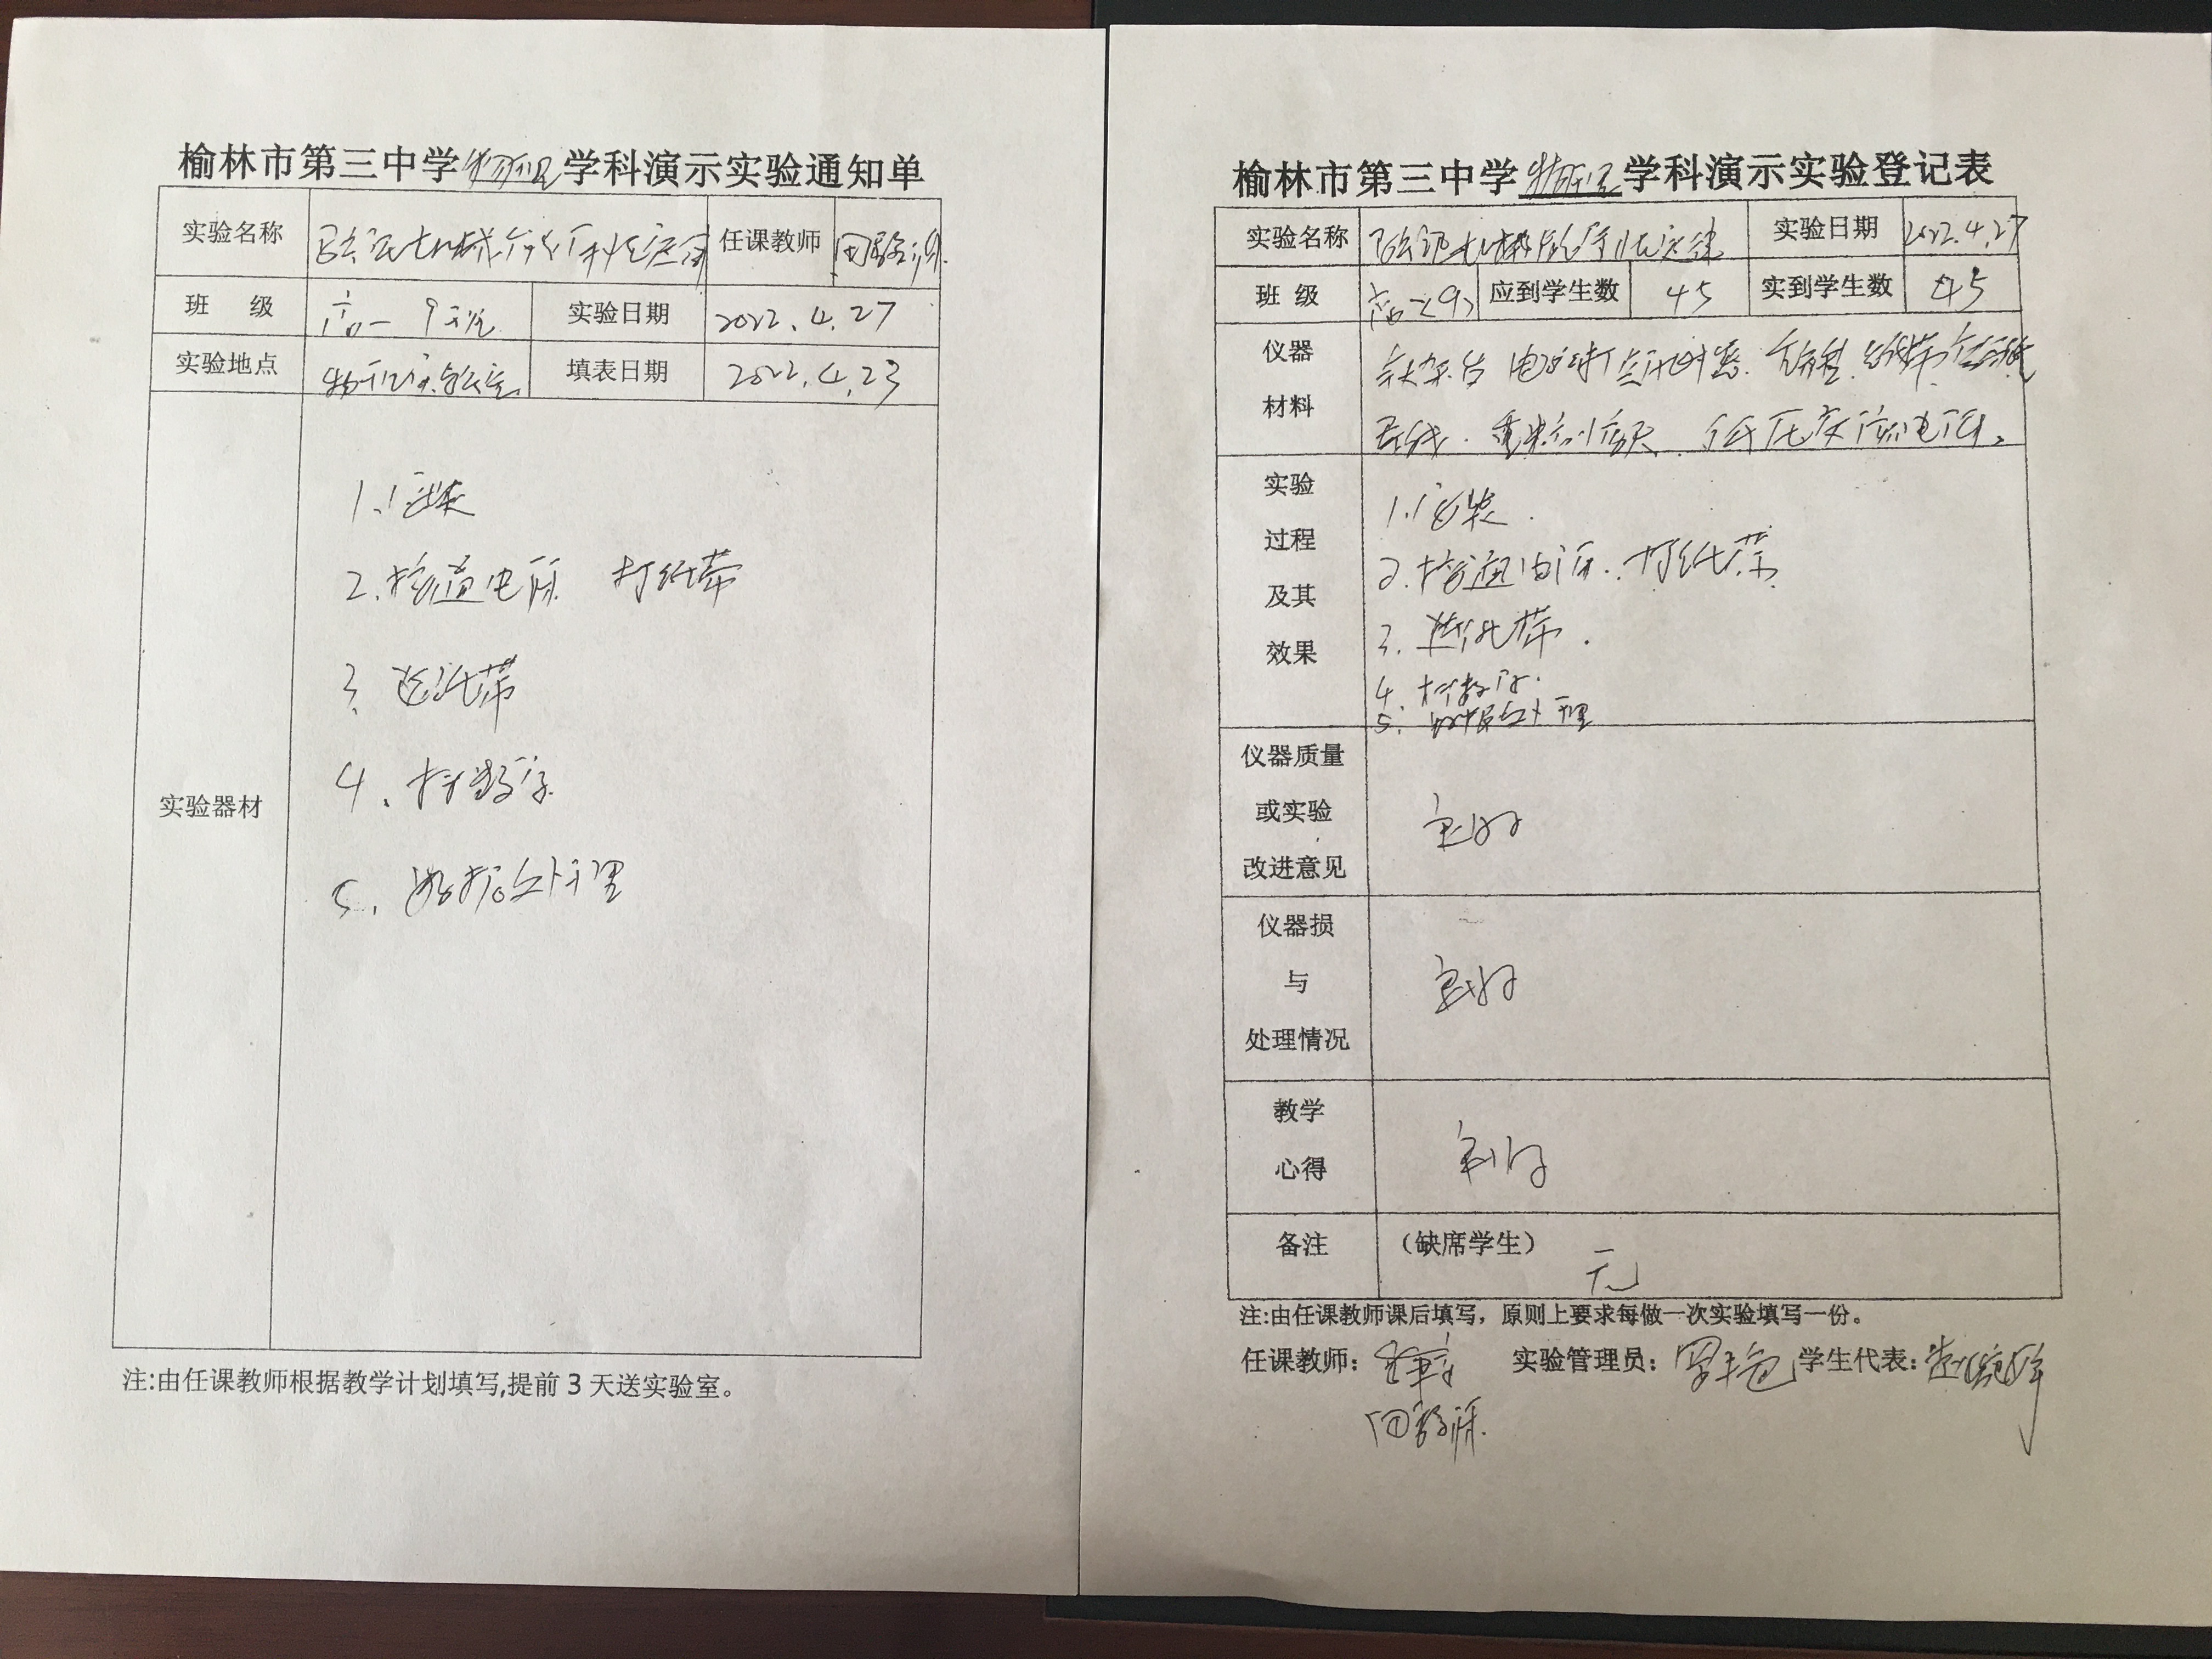 榆林市第三中学物理学科演示实验通知单
实验名称 验证机械能守恒定律 任课教师
班 级 高一 9班 实验日期 2022.4.27
实验地点 物理实验室 填表日期 2022.4.23
实验器材
1、安装
2.接通电源 打纸带
3、选纸带
4、
5、数据处理
注:由任课教师根据教学计划填写,提前3天送实验室。
榆林市第三中学物理学科演示实验登记表
实验名称 验证机械能守恒定律 实验日期 2022.4.27
班 级 高一<9> 应到学生数 45 实到学生数 45
仪器
材料
铁架台 电磁打点计时器. 纸带
导线. 重物 低压交流电源.
实验
过程
及其
效果
1.安装.
2.接通电源. 打纸带
3. 选纸带.
4
5. 数据处理
仪器质量
或实验
改进意见
良好
仪器损
与
处理情况
良好
教学
心得
良好
备注 (缺席学生)
无
注:由任课教师课后填写，原则上要求每做一次实验填写一份。
任课教师: 实验管理员: 学生代表: